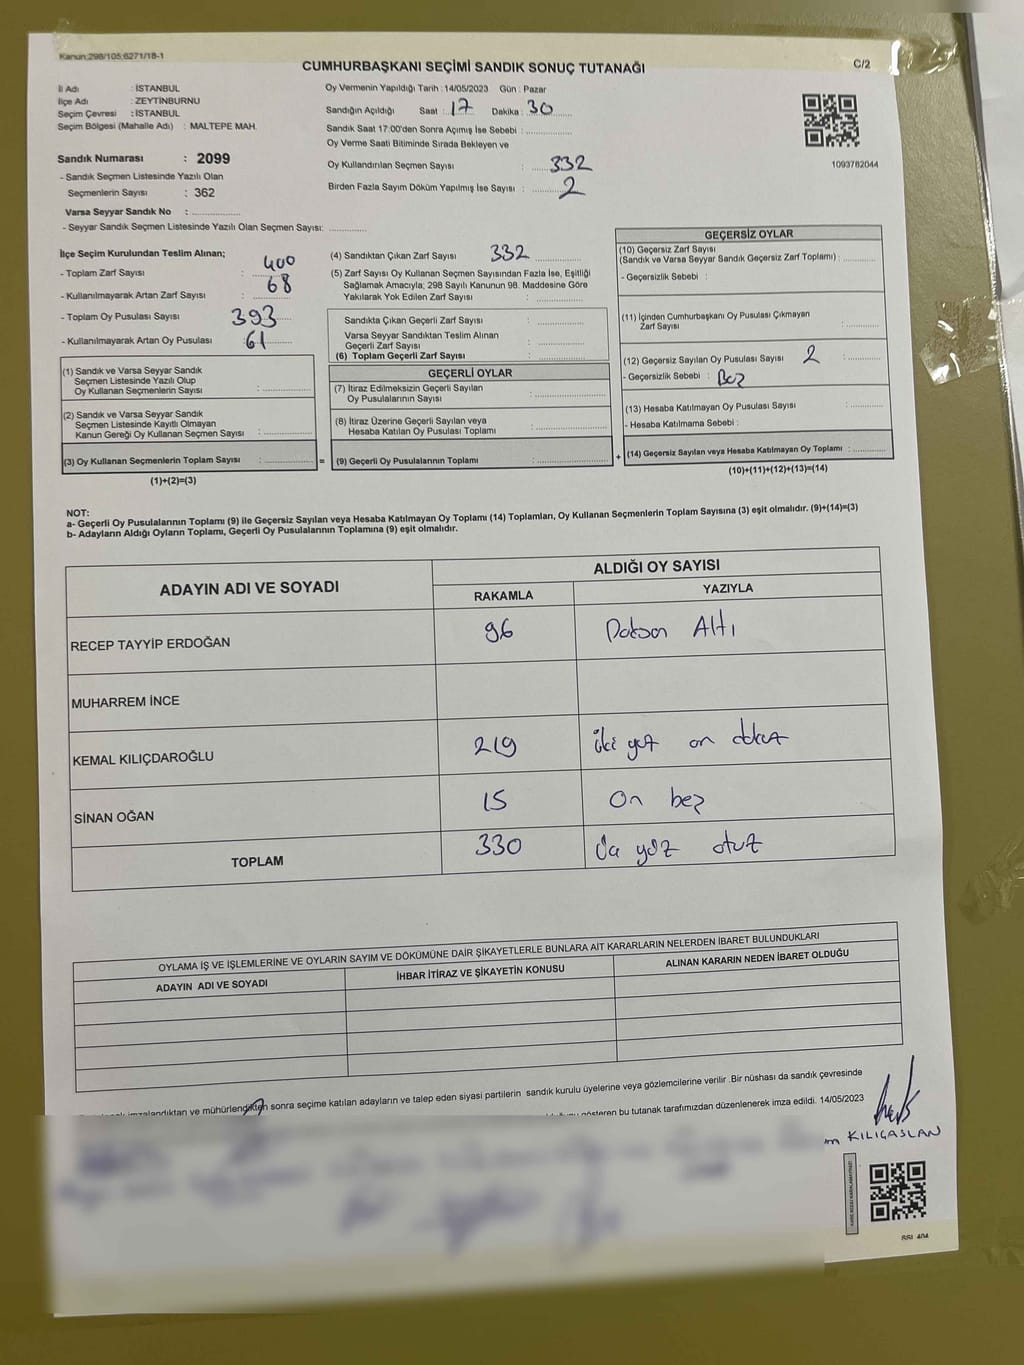 Kanun:298/105;6271/18-1
CUMHURBAŞKANI SEÇİMİ SANDIK SONUÇ TUTANAĞI
C/2
İl Adı : İSTANBUL
İlçe Adı : ZEYTİNBURNU
Seçim Çevresi : İSTANBUL
Seçim Bölgesi (Mahalle Adı) : MALTEPE MAH.
Sandık Numarası : 2099
- Sandık Seçmen Listesinde Yazılı Olan
Seçmenlerin Sayısı : 362
Varsa Seyyar Sandık No :
- Seyyar Sandık Seçmen Listesinde Yazılı Olan Seçmen Sayısı:
Oy Vermenin Yapıldığı Tarih : 14/05/2023 Gün : Pazar
Sandığın Açıldığı Saat : 17 Dakika : 30
Sandık Saat 17:00'den Sonra Açımış İse Sebebi :
Oy Verme Saati Bitiminde Sırada Bekleyen ve
Oy Kullandırılan Seçmen Sayısı : 332
Birden Fazla Sayım Döküm Yapılmış İse Sayısı : 2
1093762044
İlçe Seçim Kurulundan Teslim Alınan;
- Toplam Zarf Sayısı : 400
- Kullanılmayarak Artan Zarf Sayısı : 68
- Toplam Oy Pusulası Sayısı : 393
- Kullanılmayarak Artan Oy Pusulası : 61
(1) Sandık ve Varsa Seyyar Sandık
Seçmen Listesinde Yazılı Olup
Oy Kullanan Seçmenlerin Sayısı :
(2) Sandık ve Varsa Seyyar Sandık
Seçmen Listesinde Kayıtlı Olmayan
Kanun Gereği Oy Kullanan Seçmen Sayısı :
(3) Oy Kullanan Seçmenlerin Toplam Sayısı :
(1)+(2)=(3)
(4) Sandıktan Çıkan Zarf Sayısı : 332
(5) Zarf Sayısı Oy Kullanan Seçmen Sayısından Fazla İse, Eşitliği
Sağlamak Amacıyla; 298 Sayılı Kanunun 98. Maddesine Göre
Yakılarak Yok Edilen Zarf Sayısı :
Sandıkta Çıkan Geçerli Zarf Sayısı :
Varsa Seyyar Sandıktan Teslim Alınan
Geçerli Zarf Sayısı :
(6) Toplam Geçerli Zarf Sayısı :
GEÇERLİ OYLAR
(7) İtiraz Edilmeksizin Geçerli Sayılan
Oy Pusulalarının Sayısı :
(8) İtiraz Üzerine Geçerli Sayılan veya
Hesaba Katılan Oy Pusulası Toplamı :
= (9) Geçerli Oy Pusulalarının Toplamı :
GEÇERSİZ OYLAR
(10) Geçersiz Zarf Sayısı
(Sandık ve Varsa Seyyar Sandık Geçersiz Zarf Toplamı) :
- Geçersizlik Sebebi :
(11) İçinden Cumhurbaşkanı Oy Pusulası Çıkmayan
Zarf Sayısı :
(12) Geçersiz Sayılan Oy Pusulası Sayısı : 2
- Geçersizlik Sebebi :
(13) Hesaba Katılmayan Oy Pusulası Sayısı :
- Hesaba Katılmama Sebebi :
+ (14) Geçersiz Sayılan veya Hesaba Katılmayan Oy Toplamı :
(10)+(11)+(12)+(13)=(14)
NOT:
a- Geçerli Oy Pusulalarının Toplamı (9) ile Geçersiz Sayılan veya Hesaba Katılmayan Oy Toplamı (14) Toplamları, Oy Kullanan Seçmenlerin Toplam Sayısına (3) eşit olmalıdır. (9)+(14)=(3)
b- Adayların Aldığı Oyların Toplamı, Geçerli Oy Pusulalarının Toplamına (9) eşit olmalıdır.
ADAYIN ADI VE SOYADI
ALDIĞI OY SAYISI
RAKAMLA YAZIYLA
RECEP TAYYİP ERDOĞAN 96 Doksan Altı
MUHARREM İNCE
KEMAL KILIÇDAROĞLU 219 iki yüz on dokuz
SİNAN OĞAN 15 On beş
TOPLAM 330 yüz otuz
OYLAMA İŞ VE İŞLEMLERİNE VE OYLARIN SAYIM VE DÖKÜMÜNE DAİR ŞİKAYETLERLE BUNLARA AİT KARARLARIN NELERDEN İBARET BULUNDUKLARI
ADAYIN ADI VE SOYADI İHBAR İTİRAZ VE ŞİKAYETİN KONUSU ALINAN KARARIN NEDEN İBARET OLDUĞU
imzalandıktan ve mühürlendikten sonra seçime katılan adayların ve talep eden siyasi partilerin sandık kurulu üyelerine veya gözlemcilerine verilir .Bir nüshası da sandık çevresinde
gösteren bu tutanak tarafımızdan düzenlenerek imza edildi. 14/05/2023
KILIÇASLAN